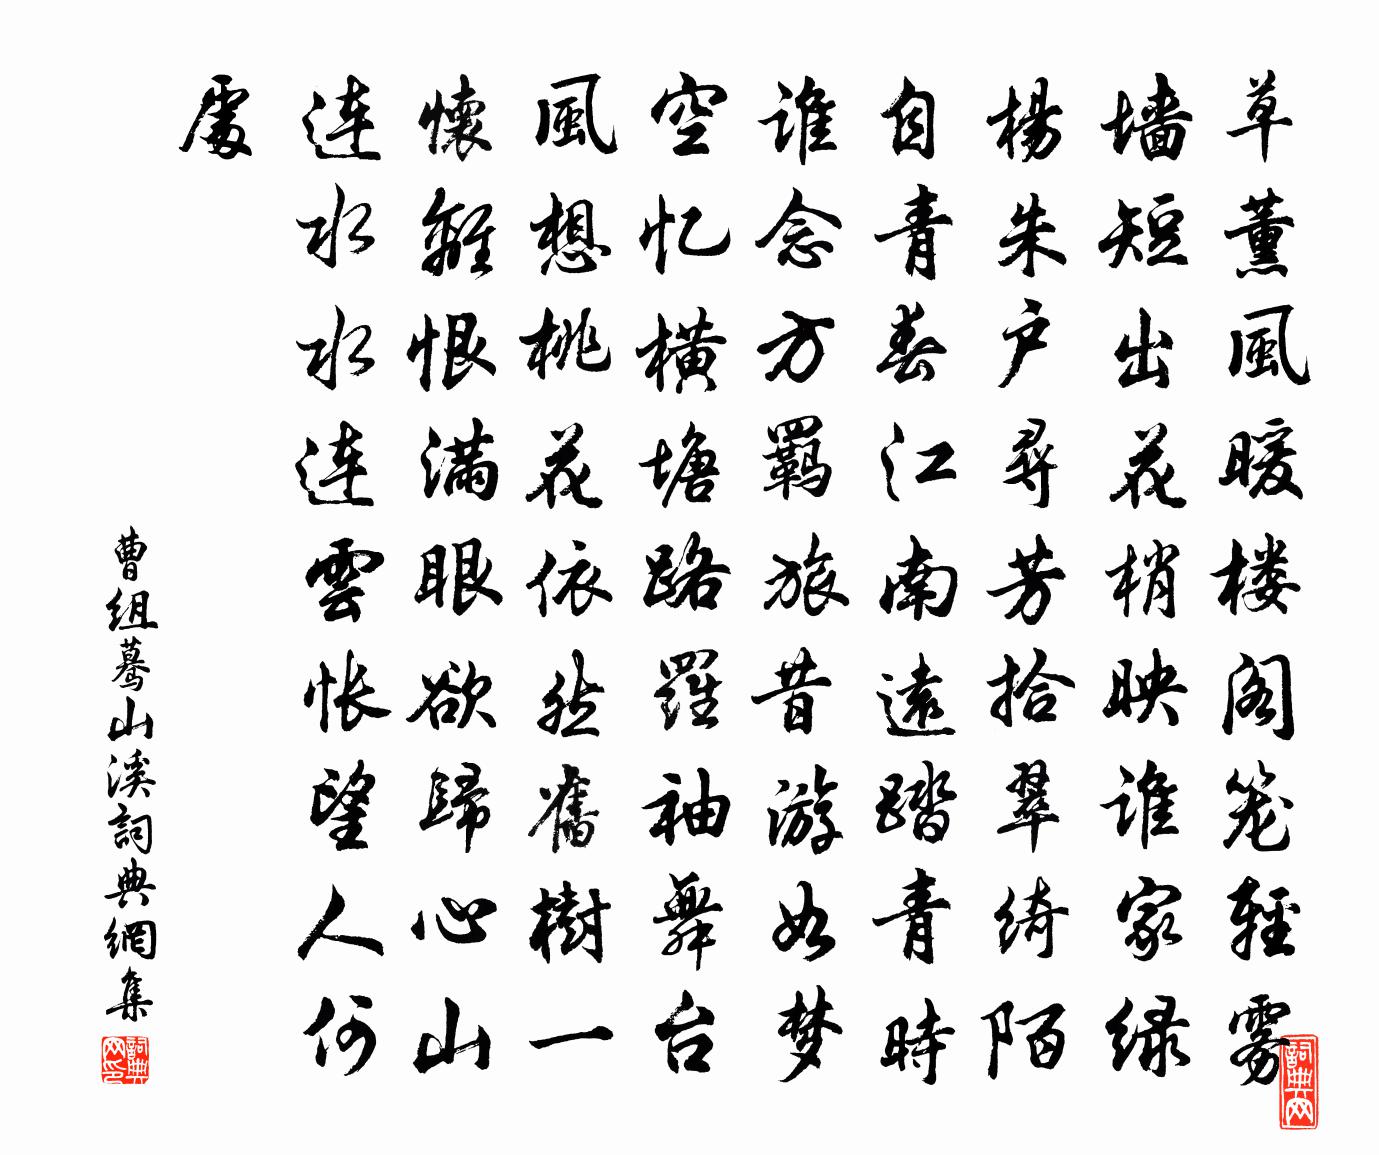 草薰風暖楼阁笼輕雾
墙短出花梢映谁家绿
楊朱户尋芳拾翠绮陌
自青春江南遠踏青時
谁念方羁旅昔游如梦
空忆橫塘路羅袖舞台
風想桃花依然舊樹一
懷離恨满眼欲歸心山
连水水连雲怅望人何
處
曹组蓦山溪詞典網集
詞典网
詞典网印